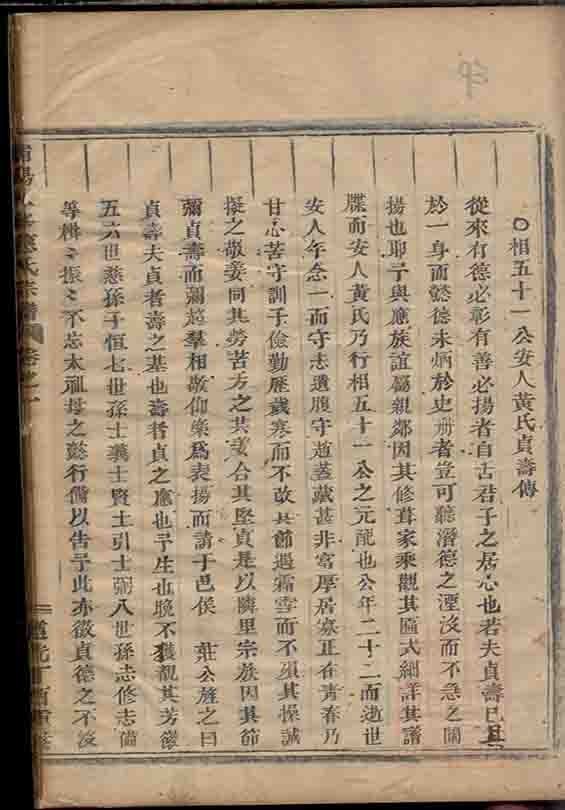 印
○相五十一公安人黃氏貞壽傳
從來有德必彰有善必揚者自古君子之居心也若夫貞壽已具
於一身而懿德未炳於史冊者豈可聽潛德之湮沒而不急之闡
揚也耶予與應族誼屬親鄰因其修葺家乘觀其匾式細詳其譜
牒而安人黃氏乃行相五十一公之元配也公年二十二而逝世
安人年念一而守志遺腹守趙蓋藏甚非富厚居寡正在青春乃
甘心苦守訓子儉勤歷歲寒而不改其節遇霜雪而不殞其操誠
擬之敬姜同其勞苦方之共姜合其堅貞是以隣里宗族因其節
彌貞壽而彌超羣相欽仰樂爲表揚而請于邑侯 莊公旌之曰
貞壽夫貞者壽之基也壽者貞之應也予生也晚不獲親其芳徽
五六世慈孫子恒七世孫士義士賢士引士弼八世孫志修志備
等楫〻振〻不忘太祖母之懿行備以告予此亦徵貞德之不沒
陽 應氏宗譜 卷之一
道光丁酉重修